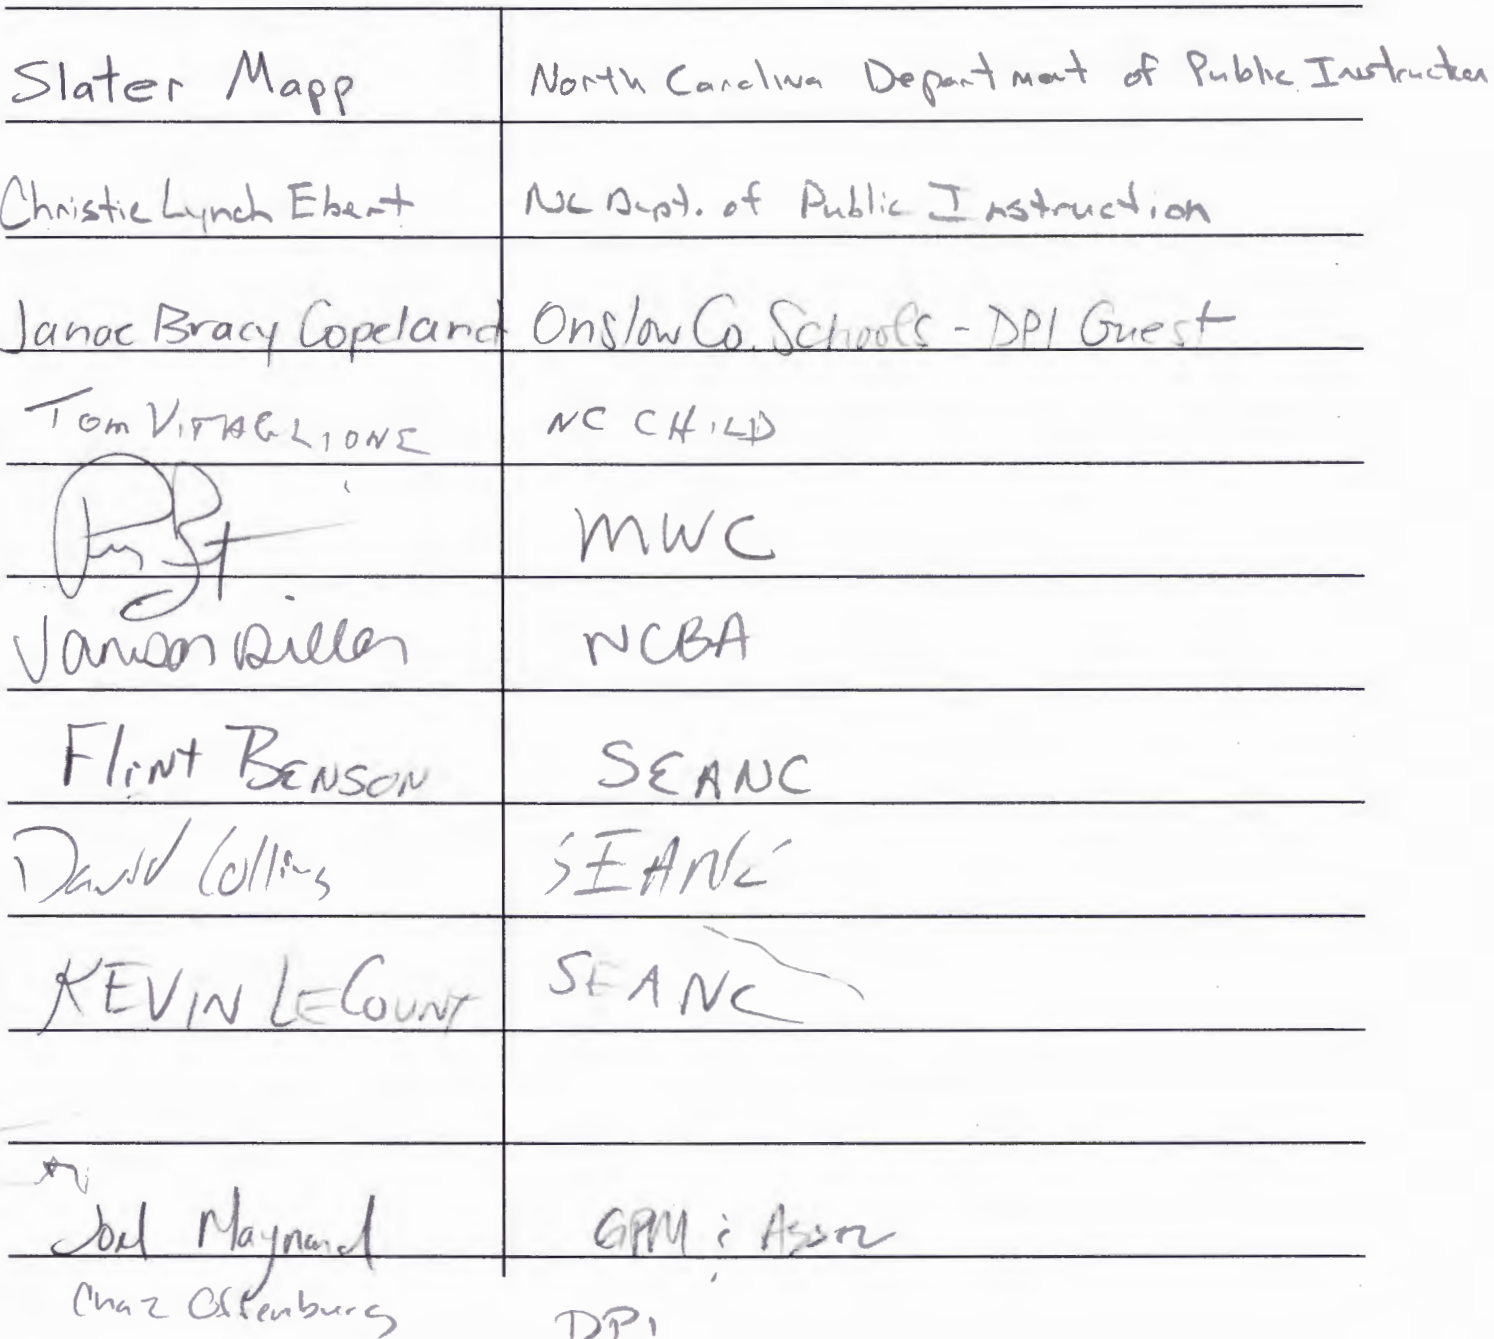 Slater Mapp North Carolina Department of Public Instruction
Christie Lynch Ebert NC Dept. of Public Instruction
Janae Bracy Copeland Onslow Co. Schools - DPI Guest
Tom VITAGLIONE NC CHILD
MWC
NCBA
Flint BENSON SEANC
David Collins SEANC
KEVIN LECOUNT SEANC
Joel Maynard GPM & Assoc
Chaz Offenburg DPI